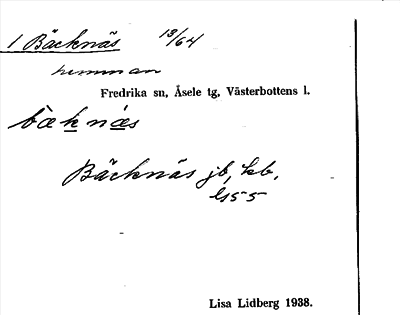 1 Bäcknäs 13/64
hemman
Fredrika sn, Åsele tg, Västerbottens l.
bæknæs
Bäcknäs jb, kb,
Lisa Lidberg 1938.